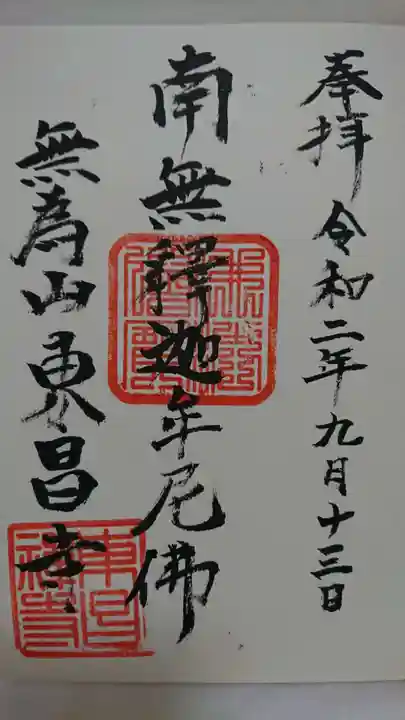 奉拝 令和二年九月十三日
南無釋迦牟尼佛
無為山東昌寺
東昌禅寺